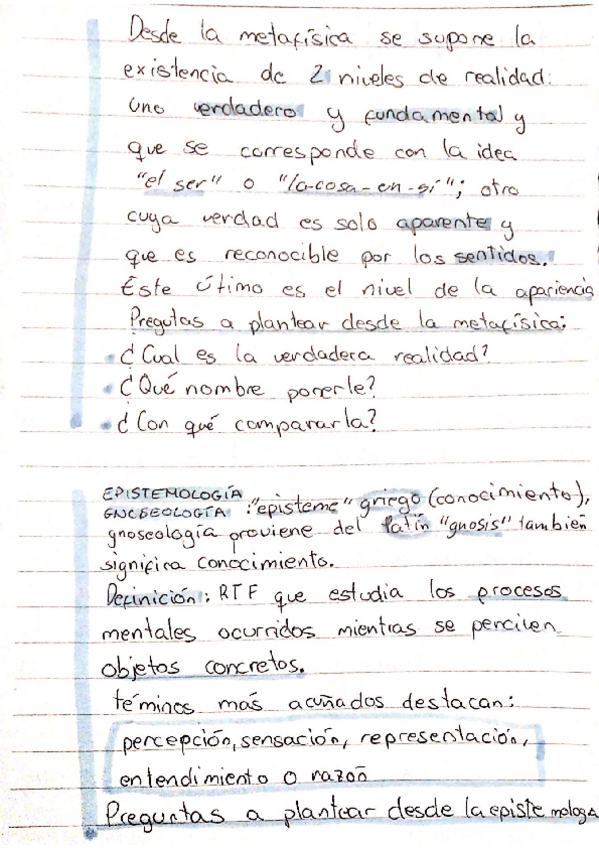 Desde la metafísica se supone la
existencia de 2 niveles de realidad:
uno verdadero y fundamental y
que se corresponde con la idea
"el ser" o "la-cosa-en-sí"; otro
cuya verdad es solo aparente y
que es reconocible por los sentidos.
Este útimo es el nivel de la apariencia
Pregutas a plantear desde la metafísica:
• ¿Cual es la verdadera realidad?
• ¿Qué nombre ponerle?
• ¿Con qué compararla?
EPISTEMOLOGÍA
GNOSEOLOGÍA : "episteme" griego (conocimiento),
gnoseología proviene del latín "gnosis" tambien
significa conocimiento.
Definición: RTF que estudia los procesos
mentales ocurridos mientras se perciven
objetos concretos.
términos más acuñados destacan:
percepción, sensación, representación,
entendimiento o razón
Preguntas a plantear desde la epistemologa